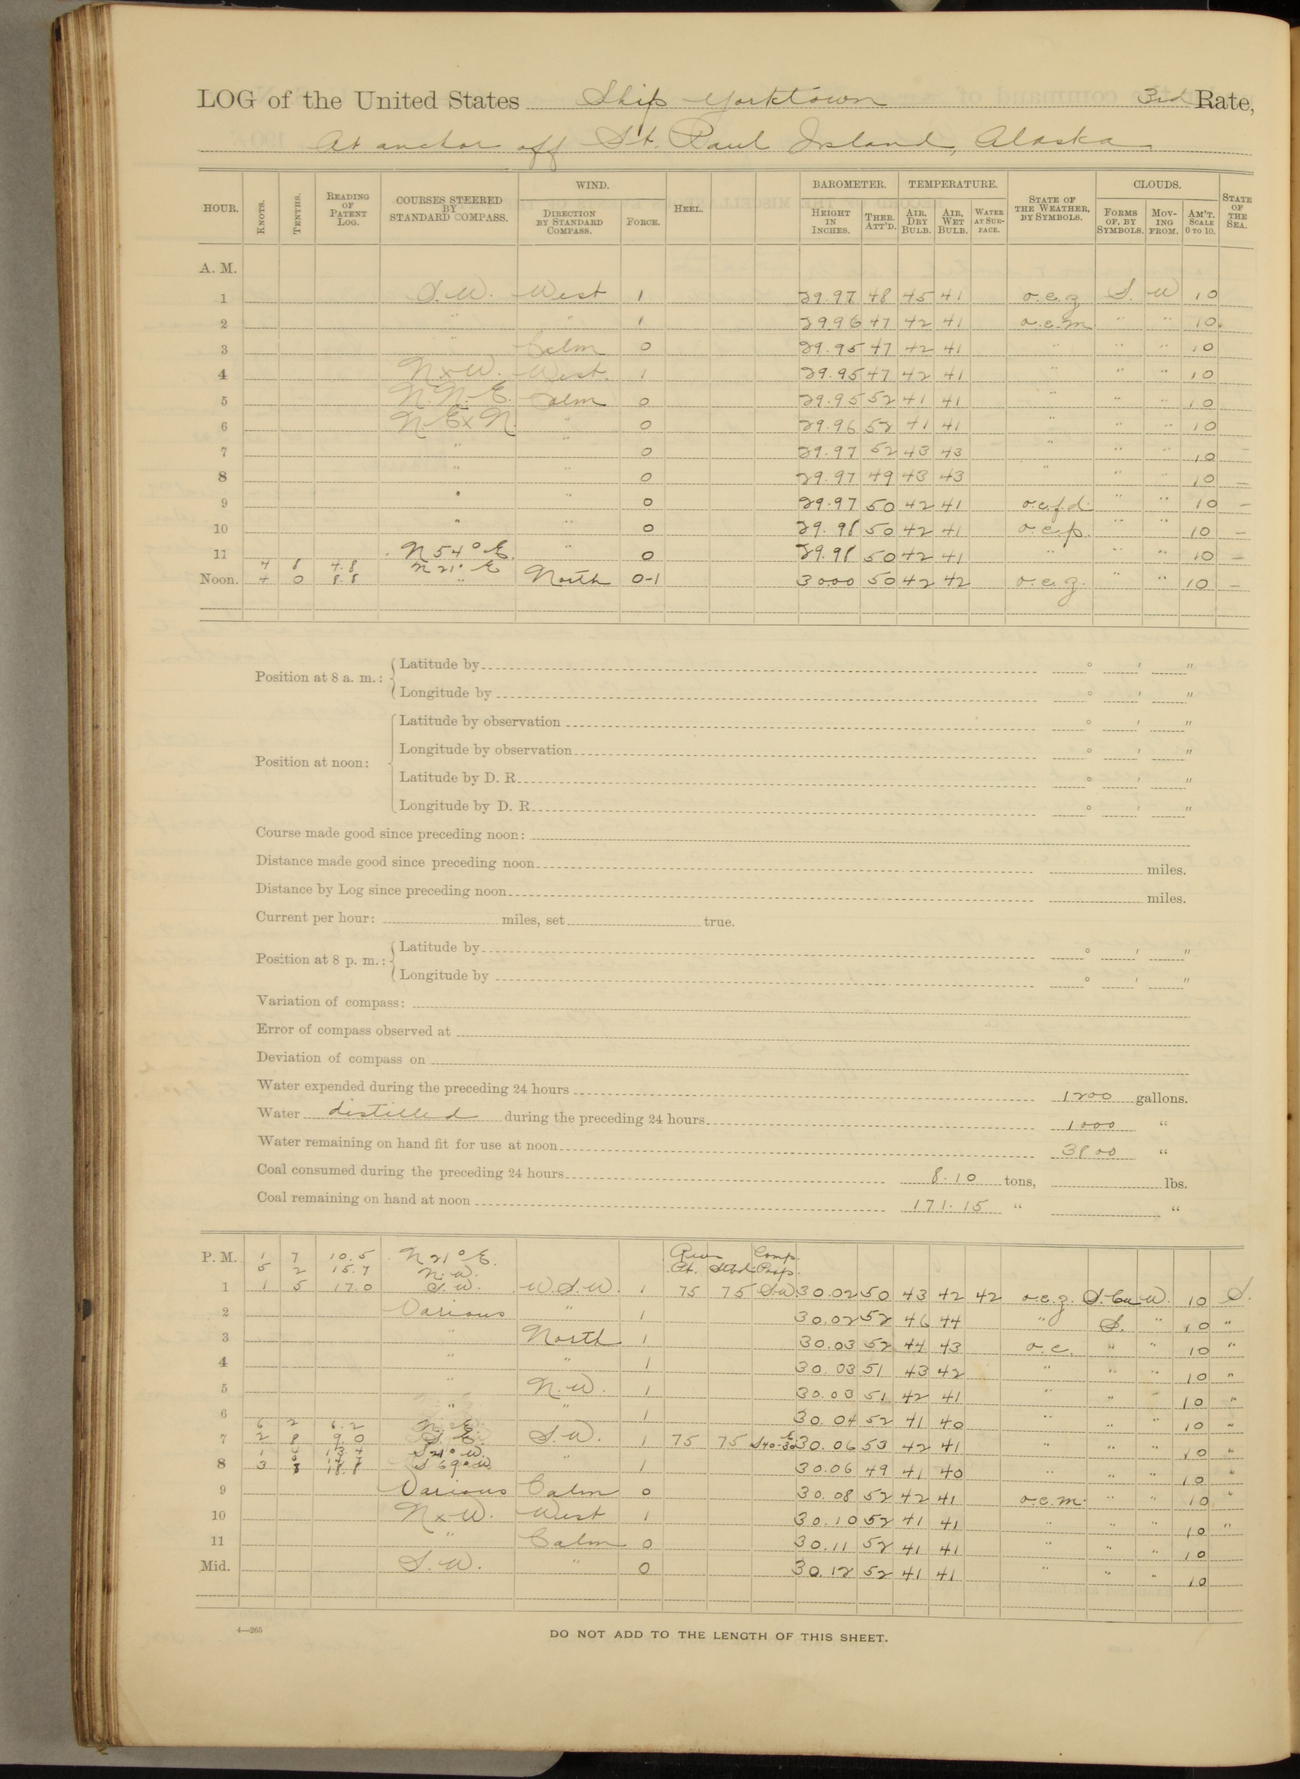 LOG of the United States Ship Yorktown 3rd Rate,
At anchor off St. Paul Island, Alaska
HOUR. KNOTS. TENTHS. READING OF PATENT LOG. COURSES STEERED BY STANDARD COMPASS. WIND. DIRECTION BY STANDARD COMPASS. FORCE. HEEL. BAROMETER. HEIGHT IN INCHES. THER. ATT'D. TEMPERATURE. AIR, DRY BULB. AIR, WET BULB. WATER AT SURFACE. STATE OF THE WEATHER, BY SYMBOLS. CLOUDS. FORMS OF, BY SYMBOLS. MOVING FROM. AM'T. SCALE 0 TO 10. STATE OF THE SEA.
A. M.
1 S.W. West 1 29.97 48 45 41 o.c.g S. W 10
2 " " 1 29.96 47 42 41 o.c.m " " 10
3 " Calm 0 29.95 47 42 41 " " " 10
4 N x W. West. 1 29.95 47 42 41 " " " 10
5 N.N.E. Calm 0 29.95 52 41 41 " " " 10
6 N.E x N. " 0 29.96 52 41 41 " " " 10
7 " " 0 29.97 52 43 43 " " " 10 -
8 " " 0 29.97 49 43 43 " " " 10 -
9 " " 0 29.97 50 42 41 o.c.f.d. " " 10 -
10 " " 0 29.98 50 42 41 o.c.p. " " 10 -
11 N 54° E. " 0 29.98 50 42 41 " " " 10 -
4 8 4.8 N 21° E
Noon. 4 0 8.8 " North 0-1 30.00 50 42 42 o.c.g. " " 10 -
Position at 8 a. m.: Latitude by ° ' "
Longitude by ° ' "
Position at noon: Latitude by observation ° ' "
Longitude by observation ° ' "
Latitude by D. R. ° ' "
Longitude by D. R. ° ' "
Course made good since preceding noon:
Distance made good since preceding noon miles.
Distance by Log since preceding noon miles.
Current per hour: miles, set true.
Position at 8 p. m.: Latitude by ° ' "
Longitude by ° ' "
Variation of compass:
Error of compass observed at
Deviation of compass on
Water expended during the preceding 24 hours 1200 gallons.
Water distilled during the preceding 24 hours 1000 "
Water remaining on hand fit for use at noon 3800 "
Coal consumed during the preceding 24 hours 8.10 tons, lbs.
Coal remaining on hand at noon 171.15 " "
P. M. 1 7 10.5 N 21° E. Revs Comp.
5 2 15.7 N.W. Pt. Stbd.
1 1 5 17.0 S.W. W.S.W. 1 75 75 S.W. 30.02 50 43 42 42 o.c.g. S.Cu W. 10 S.
2 Various " 1 30.02 52 46 44 " S. " 10 "
3 " North 1 30.03 52 44 43 o.c. " " 10 "
4 " " 1 30.03 51 43 42 " " " 10 "
5 " N.W. 1 30.03 51 42 41 " " " 10 "
6 " " 1 30.04 52 41 40 " " " 10 "
6 2 6.2 N.E.
7 2 8 9.0 S.E. S.W. 1 75 75 30.06 53 42 41 " " " 10 "
S 21° W.
8 3 18.8 S 69° W " 1 30.06 49 41 40 " " " 10 "
9 Various Calm 0 30.08 52 42 41 o.c.m. " " 10 "
10 N x W. West 1 30.10 52 41 41 " " " 10 "
11 " Calm 0 30.11 52 41 41 " " " 10
Mid. S.W. " 0 30.12 52 41 41 " " " 10
4—265
DO NOT ADD TO THE LENGTH OF THIS SHEET.